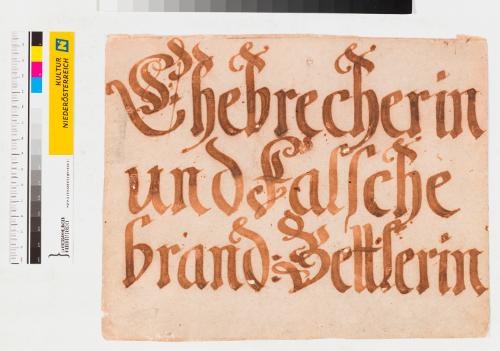 Ehebrecherin
und Falsche
brand-Bettlerin
KULTUR
NIEDERÖSTERREICH